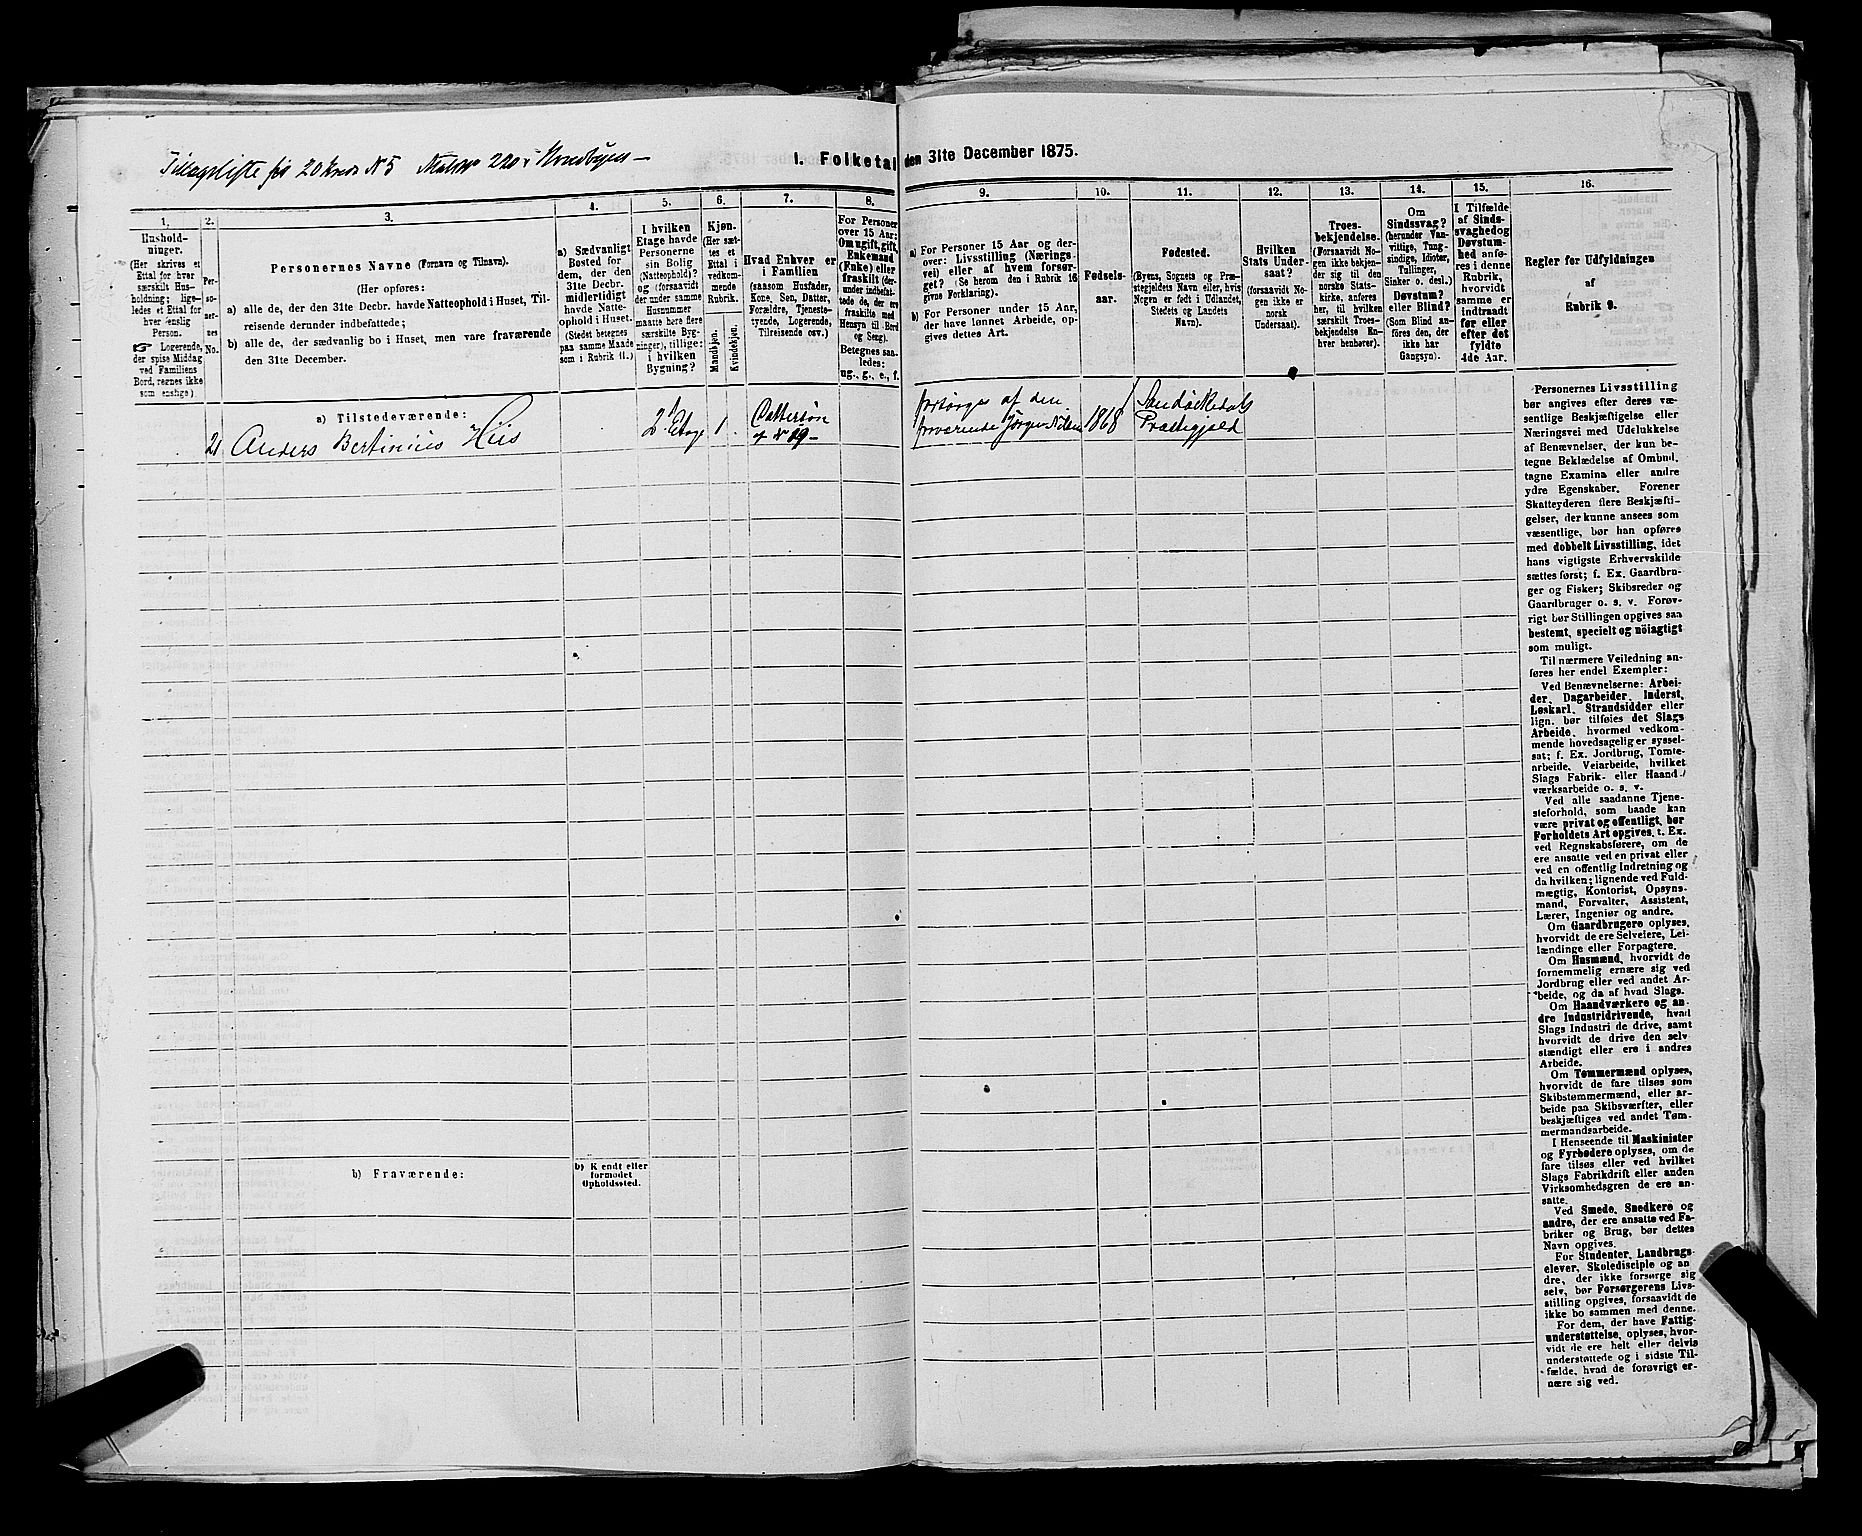 Tillægsliste for 20 Kreds N 5 Matr 220 i Nordbyen —
I. Folketal den 31te December 1875.
1.
Hushold-
ninger.
(Her skrives et
Ettal for hver
særskilt Hus-
holdning; lige-
ledes et Ettal for
hver enslig
Person.
☞ Logerende,
der spise Middag
ved Familiens
Bord, regnes ikke
som enslige).
2.
Per-
so-
ner-
nes
No.
3.
Personernes Navne (Fornavn og Tilnavn).
(Her opføres:
a) alle de, der den 31te Decbr. havde Natteophold i Huset, Til-
reisende derunder indbefattede;
b) alle de, der sædvanlig bo i Huset, men vare fraværende
den 31te December.
4.
a) Sædvanligt
Bosted for
dem, der den
31te Decbr.
midlertidigt
havde Natte-
ophold i Huset.
(Stedet betegnes
paa samme Maade
som i Rubrik 11.)
5.
I hvilken
Etage havde
Personerne
sin Bolig
(Natteophold)?
og (forsaavidt
der under samme
Husnummer
maatte børe flere
særskilte Byg-
ninger), tillige:
i hvilken
Bygning?
6.
Kjøn.
(Her sæt-
tes et
Ettal i
vedkom-
mende
Rubrik.
Mandkjøn.
Kvindekjøn.
7.
Hvad Enhver er
i Familien
(saasom Husfader,
Kone, Søn, Datter,
Forældre, Tjeneste-
tyende, Logerende,
Tilreisende osv.)
8.
For Personer
over 15 Aar:
Om ugift, gift,
Enkemand
(Enke) eller
fraskilt (der-
under indbefat-
tede, de, der ere
fraskilte med
Hensyn til Bord
og Seng).
Betegnes saa-
ledes:
ug., g., e., f.
9.
a) For Personer 15 Aar og der-
over: Livsstilling (Nærings-
vei) eller af hvem forsør-
get? (Se herom den i Rubrik 16
givne Forklaring).
b) For Personer under 15 Aar,
der have lønnet Arbeide, op-
gives dettes Art.
10.
Fødsels-
aar.
11.
Fødested.
(Byens, Sognets og Præ-
stegjeldets Navn eller, hvis
Nogen er født i Udlandet,
Stedets og Landets
Navn).
12.
Hvilken
Stats Under-
saat?
(forsaavidt No-
gen ikke er
norsk
Undersaat).
13.
Troes-
bekjendelse.
(Forsaavidt No-
gen ikke bekjen-
der sig til den
norske Stats-
kirke, anføres
her, til hvilken
særskilt Troes-
bekjendelse En-
hver henhører).
14.
Om
Sindssvag?
(herunder Van-
vittige, Tung-
sindige, Idioter,
Tullinger,
Sinker o. desl.)
Døvstum?
eller Blind?
(Som Blind an-
føres den, der
ikke har
Gangsyn).
15.
I Tilfælde
af Sinds-
svaghed og
Døvstum-
hed anfø-
res i denne
Rubrik,
hvorvidt
samme er
indtraadt
før eller
efter det
fyldte
4de Aar.
16.
Regler for Udfyldningen
af
Rubrik 9.
a) Tilstedeværende:
21 Anders Bertinius Hiis 2d Etage 1 . Dattersøn af N 19 — forsørges af den fraværende Jørgen 1868 Præstegjeld
b) Fraværende:
b) Kendt eller
formodet
Opholdssted.
Personernes Livsstilling
bør angives efter deres væ-
sentlige Beskjæftigelse eller
Næringsvei med Udelukkelse
af Benævnelser, der kun be-
tegne Beklædelse af Ombud,
tagne Examina eller andre
ydre Egenskaber. Forener
Skatteyderen flere Beskjæfti-
gelser, der kunne ansees som
væsentlige, bør han opføres
med dobbelt Livsstilling, idet
hans vigtigste Erhvervskilde
sættes først; f. Ex. Gaardbru-
ger og Fisker; Skibsreder og
Gaardbruger o. s. v. Forøv-
rigt bør Stillingen opgives saa
bestemt, specielt og nöiagtigt
som muligt.
Til nærmere Veiledning an-
føres her endel Exempler:
Ved Benævnelserne: Arbei-
der, Dagarbeider, Inderst,
Løskarl, Strandsidder eller
lign. bør tilføies det Slags
Arbeide, hvormed vedkom-
mende hovedsagelig er syssel-
sat; f. Ex. Jordbrug, Tomte-
arbeide, Veiarbeide, hvilket
Slags Fabrik- eller Haand-
værksarbeide o. s. v.
Ved alle saadanne Tjene-
steforhold, som baade kan
være privat og offentligt, bør
Forholdets Art opgives, t. Ex.
ved Regnskabsførere, om de
ere ansatte ved en privat eller
ved en offentlig Indretning og
da hvilken; lignende ved Fuld-
mægtig, Kontorist, Opsyns-
mand, Forvalter, Assistent,
Lærer, Ingeniør og andre.
Om Gaardbrugere oplyses,
hvorvidt de ere Selveiere, Lei-
lændinge eller Forpagtere.
Om Husmænd, hvorvidt de
fornemmelig ernære sig ved
Jordbrug eller ved andet Ar-
beide, og da af hvad Slags.
Om Haandværkere og an-
dre Industridrivende, hvad
Slags Industri de drive, samt
hvorvidt de drive den selv-
stændigt eller ere i andres
Arbeide.
Om Tømmermænd oplyses,
hvorvidt de fare tilsøs som
Skibstømmermænd, eller ar-
beide paa Skibsværfter, eller
beskjæftiges ved andet Tøm-
mermandsarbeide.
I Henseende til Maskinister
og Fyrbødere oplyses, om de
fare tilsøs eller ved hvilket
Slags Fabrikdrift eller anden
Virksomhedsgren de ere an-
satte.
Ved Smede, Snedkere og
andre, der ere ansatte ved Fa-
briker og Brug, bør dettes
Navn opgives.
For Studenter, Landbrugs-
elever, Skoledisciple og an-
dre, der ikke forsørge sig
selv, bør Forsørgerens Livs-
stilling opgives, forsaavidt de
ikke bo sammen med denne.
For dem, der have Fattig-
understøttelse, oplyses, hvor-
vidt de ere helt eller delvis
understøttede og i sidste Til-
fælde, hvad de forøvrigt er-
nære sig ved.